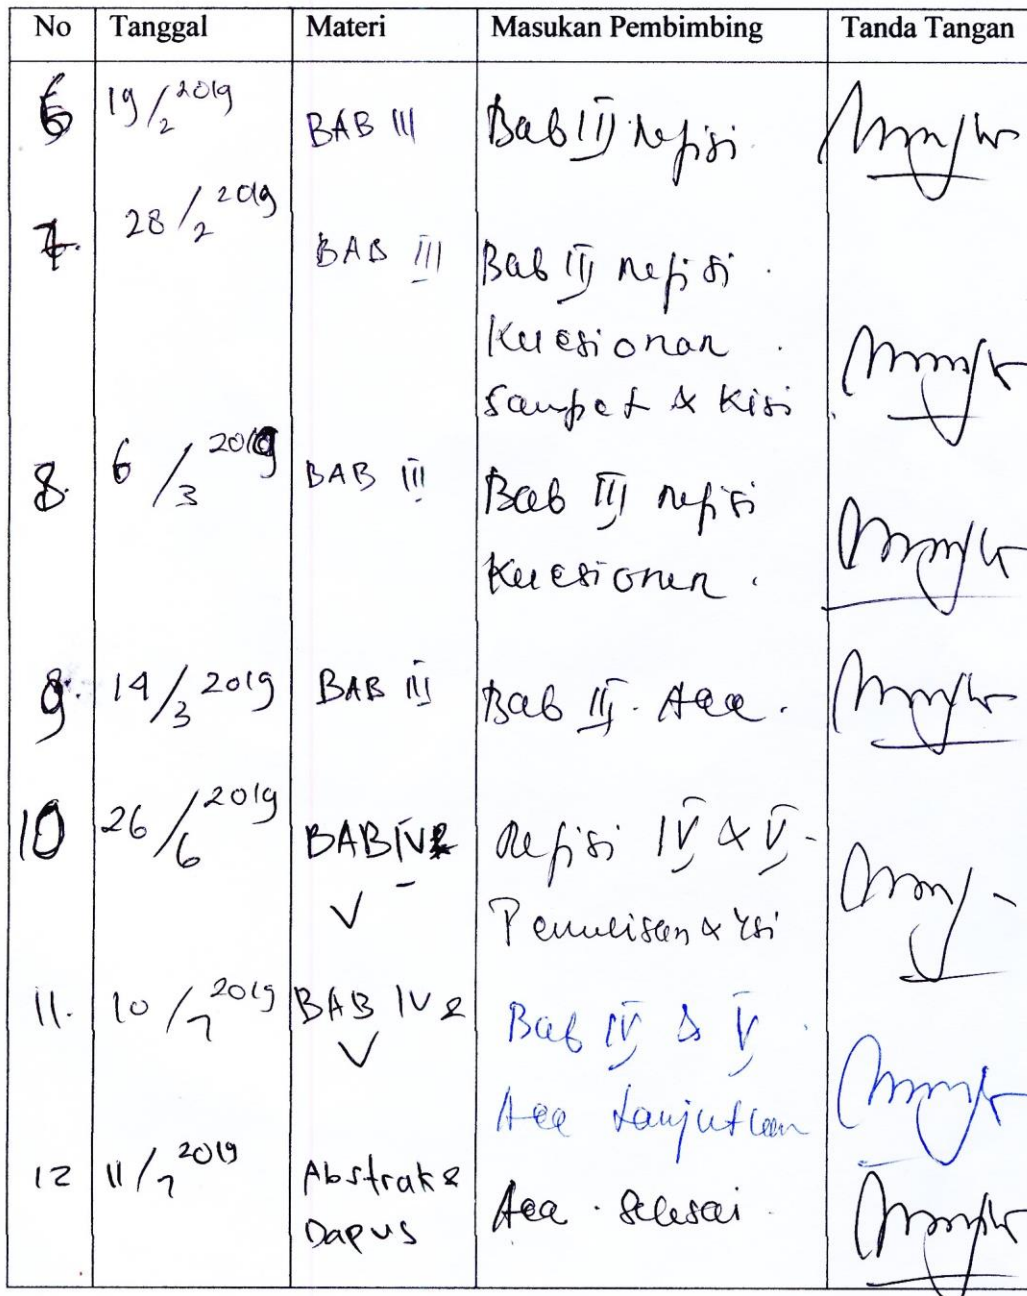 No Tanggal Materi Masukan Pembimbing Tanda Tangan
6 19/2 2019 BAB III Bab III refisi
7. 28/2 2019 BAB III Bab III refisi.
Kuesionar.
Sampel & Kisi
8. 6/3 2019 BAB III Bab III refisi
Kuesioner.
9. 14/3 2019 BAB III Bab III. Acc.
10 26/6 2019 BAB IV & Refisi IV & V -
V Penulisan & isi
11. 10/7 2019 BAB IV & Bab IV & V.
V Acc Lanjutkan
12 11/7 2019 Abstrak & Acc. Selesai.
Dapus